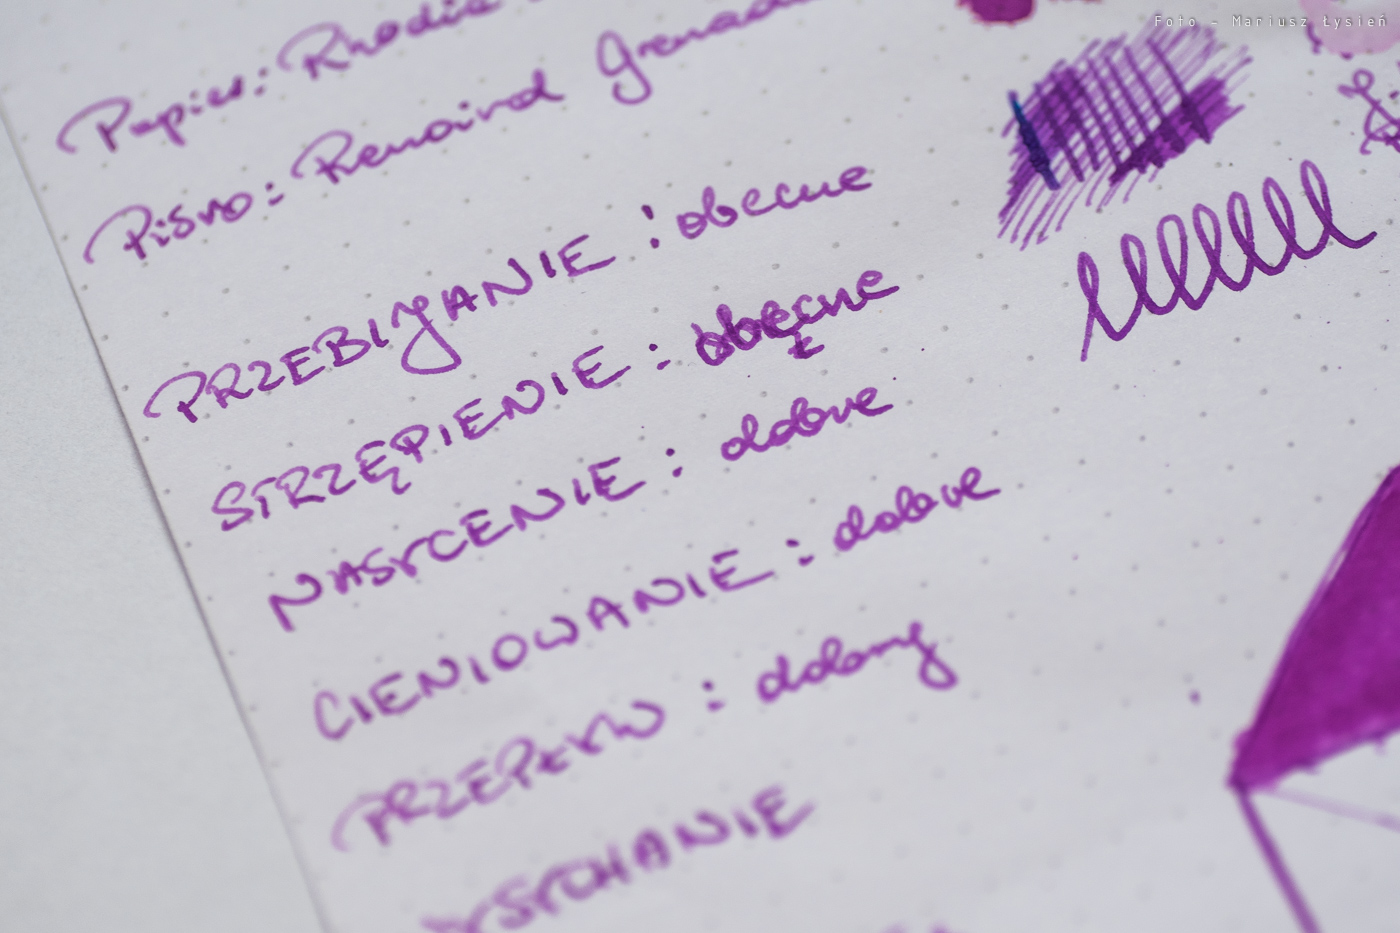 Foto - Mariusz Łysień
Papier: Rhodia
Pismo: Renaird
PRZEBIJANIE : obecne
STRZĘPIENIE : obecne
NASYCENIE : dobre
CIENIOWANIE : dobre
PRZEPŁYW : dobry